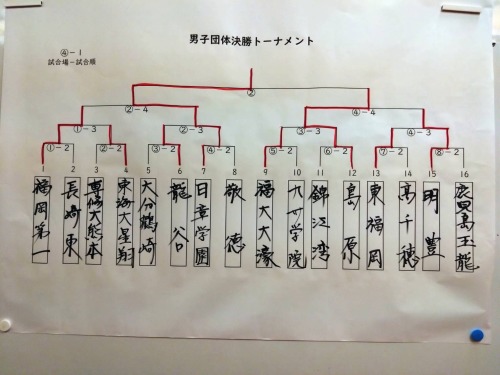 男子団体決勝トーナメント
④-1
試合場-試合順
②
②-4
④-4
①-3
②-3
③-3
⑦-3
①-2
②-2
③-2
④-2
⑤-2
⑥-2
⑦-2
⑧-2
1 2 3 4 5 6 7 8 9 10 11 12 13 14 15 16
福岡第一
長崎東
専修大熊本
東海大星翔
大分鶴崎
龍谷
日章学園
敬徳
福大大濠
九州学院
錦江湾
島原
東福岡
高千穂
明豊
鹿児島玉龍